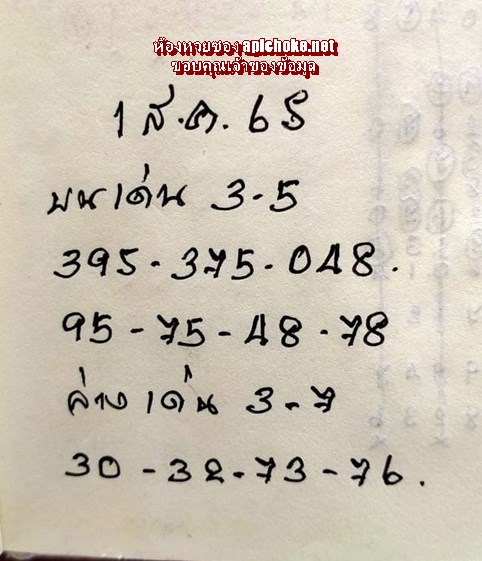 ห้องหวยซอง apichoke.net
ขอบคุณเจ้าของข้อมูล
1 ส.ค. 65
บนเด่น 3-5
395-375-048.
95-75-48-78
ล่างเด่น 3-7
30-32-73-76.